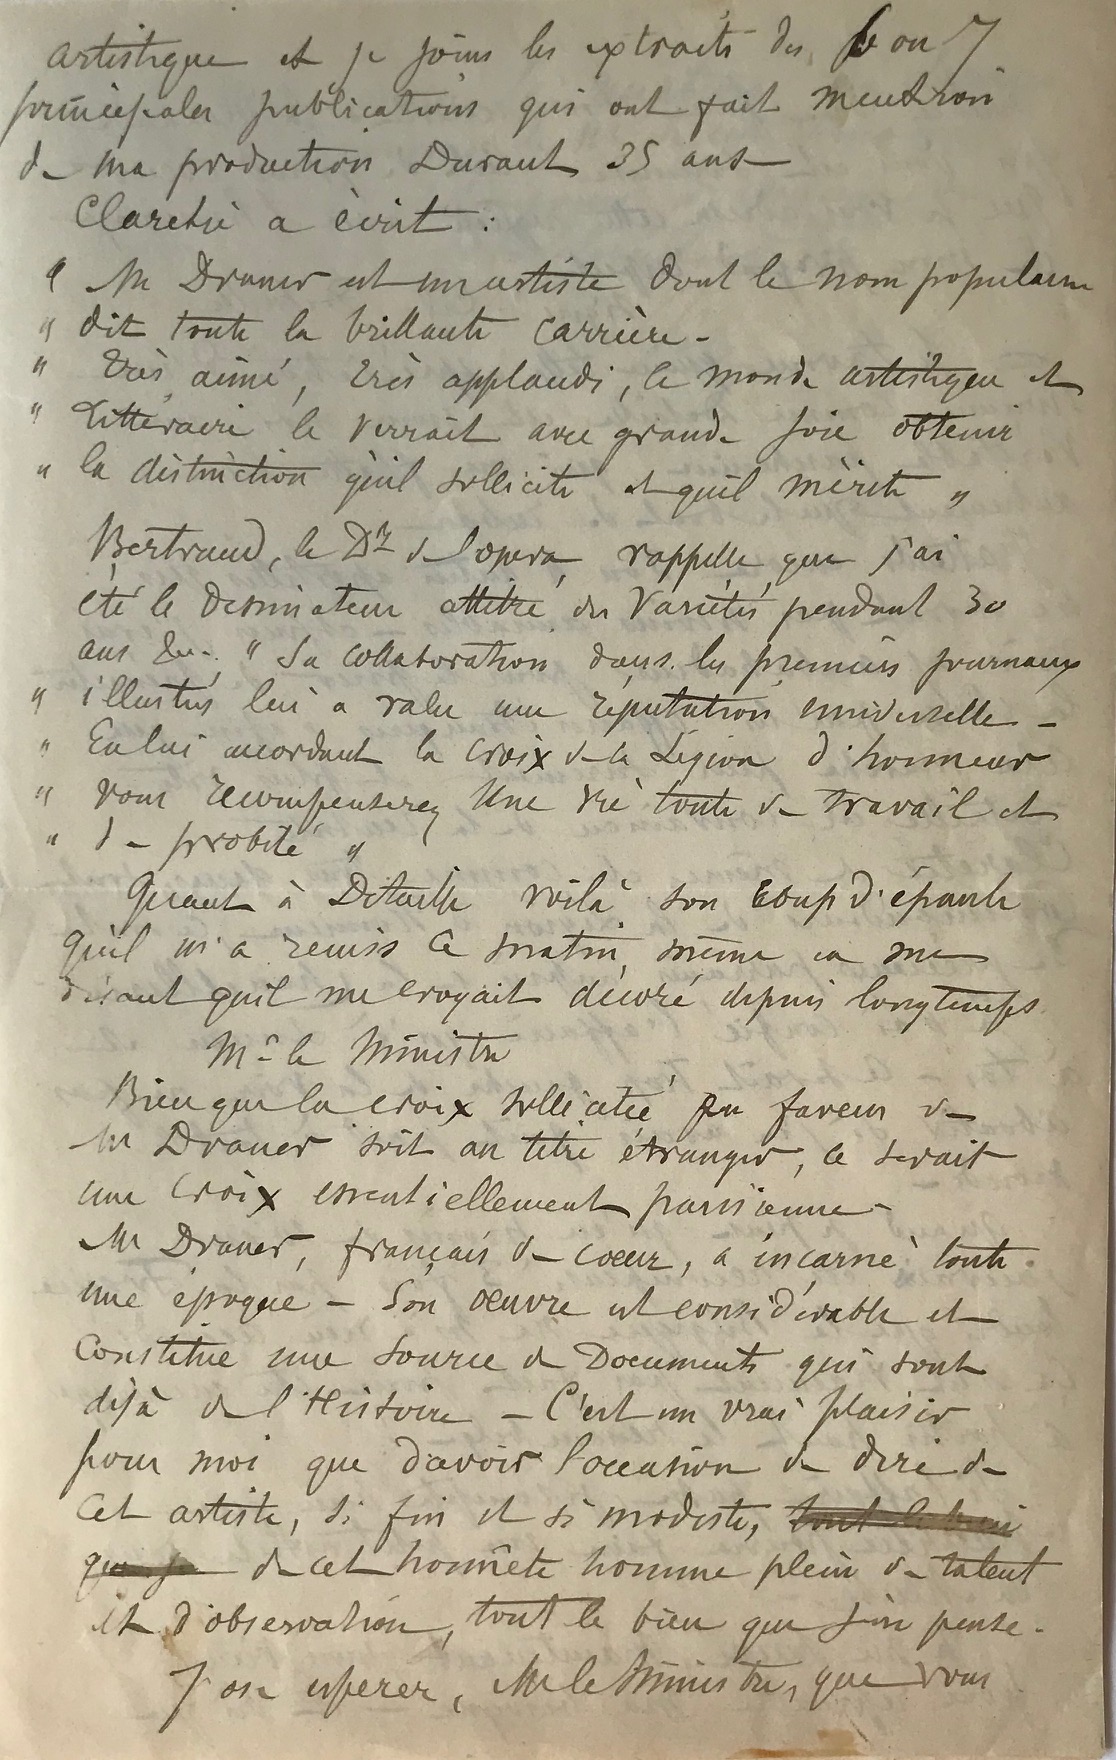 artistique et je joins les extraits des 6 ou 7
principales publications qui ont fait mention
de ma production Durant 35 ans
Claretie a écrit :
" Mr Draner est un artiste dont le nom populaire
" dit toute la brillante carrière -
" très aimé, très applaudi, le monde artistique et
" Littéraire le verrait avec grande joie obtenir
" la distinction qu'il sollicite et qu'il mérite "
Bertrand, le Dr de l'opera, rappelle que j'ai
été le dessinateur attitré des Variétés pendant 30
ans &c. " Sa collaboration dans les premiers journaux
" illustrés lui a valu une réputation universelle -
" En lui accordant la croix de la Légion d'honneur
" vous récompenserez Une vie toute de travail et
" de probité "
Quant à Detaille voilà son coup d'épaule
qu'il m'a remis ce matin même en me
disant qu'il me croyait décoré depuis longtemps.
Mr le Ministre
Bien que la croix sollicitée en faveur de
Mr Draner soit au titre étranger, ce serait
une croix essentiellement parisienne -
Mr Draner, français de coeur, a incarné toute
une époque - Son oeuvre est considérable et
Constitue une source de Documents qui sont
déjà de l'Histoire - C'est un vrai plaisir
pour moi que d'avoir l'occasion de dire de
Cet artiste, si fin et si modeste, tout le bien
que je de cet honnête homme plein de talent
et d'observation, tout le bien que j'en pense.
J'ose esperer, Mr le Ministre, que vous